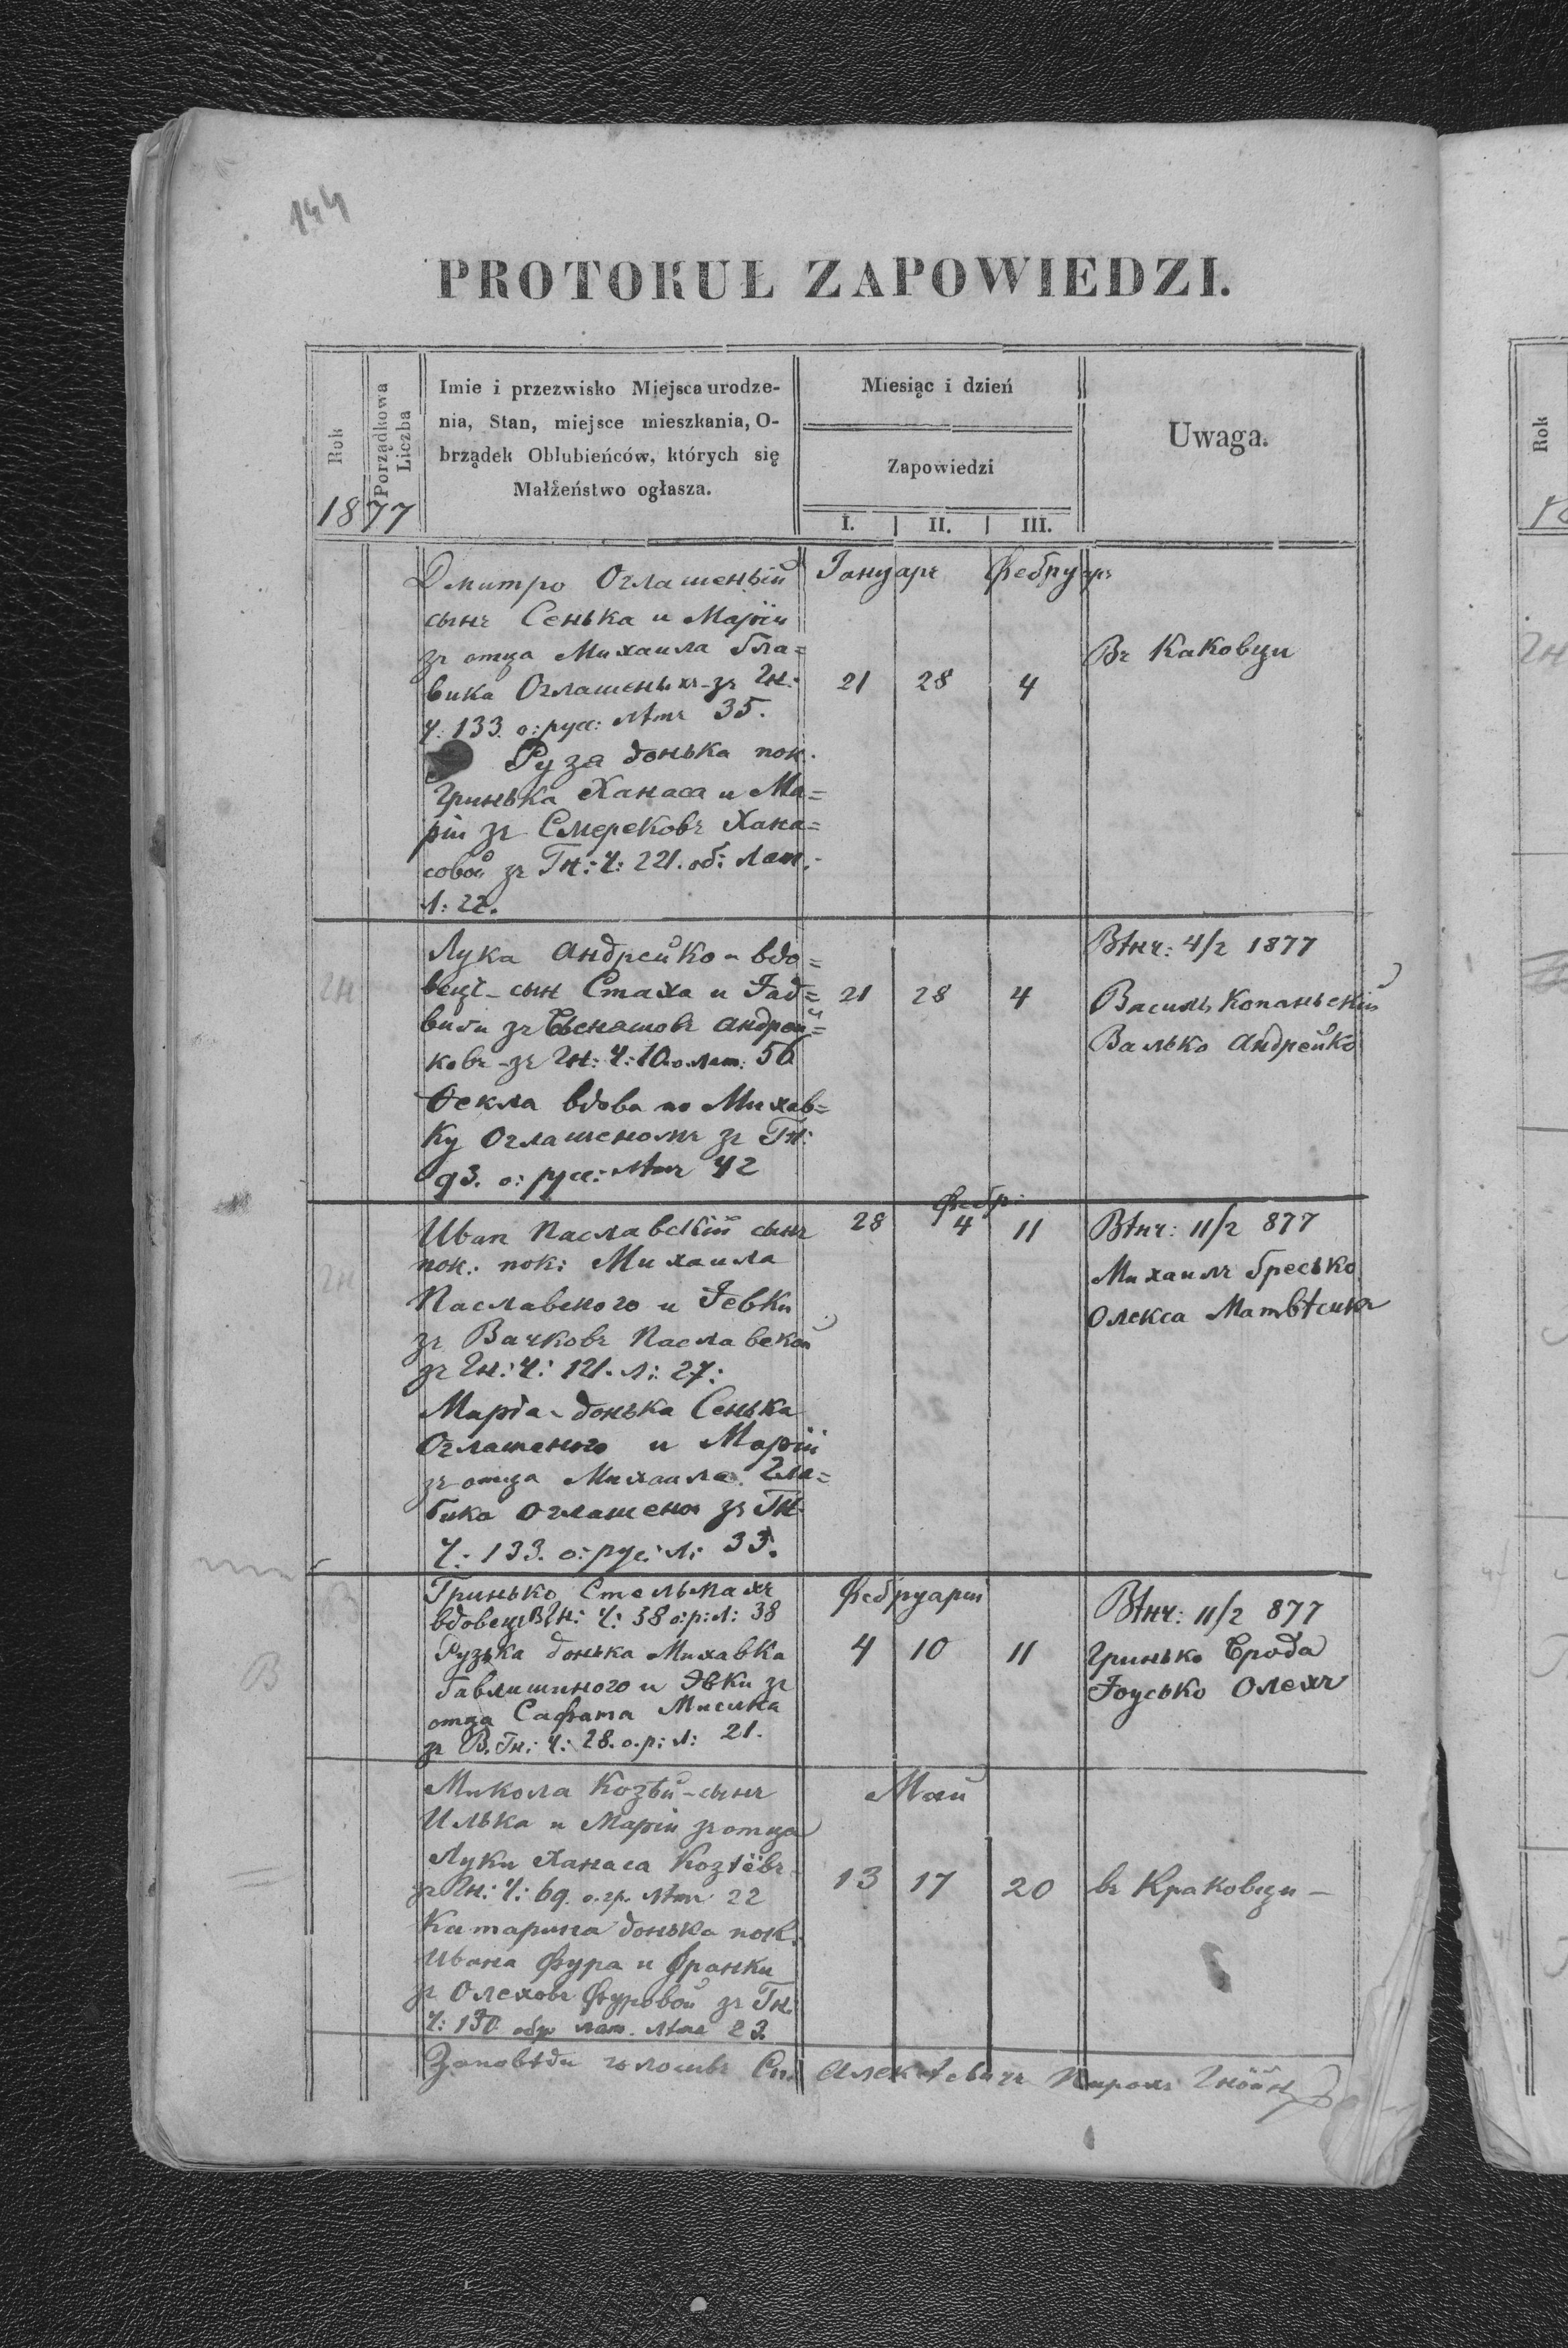 144
PROTOKUŁ ZAPOWIEDZI.
Rok
Porządkowa Liczba
Imie i przezwisko Miejsca urodze-
nia, Stan, miejsce mieszkania, O-
brządek Oblubieńców, których się
Małżeństwo ogłasza.
Miesiąc i dzień
Zapowiedzi
I. II. III.
Uwaga.
1877
Дмитро Оглашеный
сынъ Сенька и Маріи
зъ отца Михаила Гла=
вика Оглашеныхъ-зъ Гн:
Ч: 133. о: рус: лѣтъ 35.
Руза донька пок.
Гринька Ханаса и Ма=
ріи зъ Смерековъ Хана=
совои зъ Гн: Ч: 221. об: лат:
л: 22.
Іануаръ Фебруаръ
21 28 4
Въ Каковци
Лука Андрейко - вдо=
вецъ - сын Стаха и Іад=
виги зъ Андрей=
ковъ - зъ Гн: Ч: 10. о. лат: 56
Ѳекла вдова по Михав=
ку Оглашеномъ зъ Гн:
93. о: рус: лѣтъ 42
гн
21 28 4
Вѣнч: 4/2 1877
Василь Копаньскій
Валько Андрейко
Иван Паславскій сынъ
пок: Михаила
Паславского и Іевки
зъ Вачковъ Паславскои
зъ Гн: Ч: 121. л: 27:
Маріа - донька Сенька
Оглашеного и Маріи
зъ отца Михаила Гла=
вика Оглашена зъ Гн.
Ч: 133. о: рус: л: 33.
гн
Фебр:
28 4 11
Вѣнч: 11/2 877
Михаилъ Гресько
Олекса Матвѣсикъ
Гринько Стельмахъ
вдовецъ В Гн: Ч: 38 о: р: л: 38
Рузька донька Михавка
Гавлишиного и Эвки зъ
отца Сафата Мисика
зъ В. Гн: Ч: 28. о. р: л: 21.
В
Фебруарій
4 10 11
Вѣнч: 11/2 877
Гринько Брода
Іоусько Олехъ
Микола Козѣй - сынъ
Илька и Маріи зъ отца
Луки Ханаса Козѣёвъ -
зъ Гн: Ч: 69. о. гр. лѣтъ 22
Катарина донька пок.
Ивана Фура и Франки
зъ Олеховъ Фуровой зъ Гн:
Ч: 130 обр. лат. лѣта 23
Май
13 17 20
въ Краковци -
Заповѣди голосивъ Алексѣевичъ Парохъ